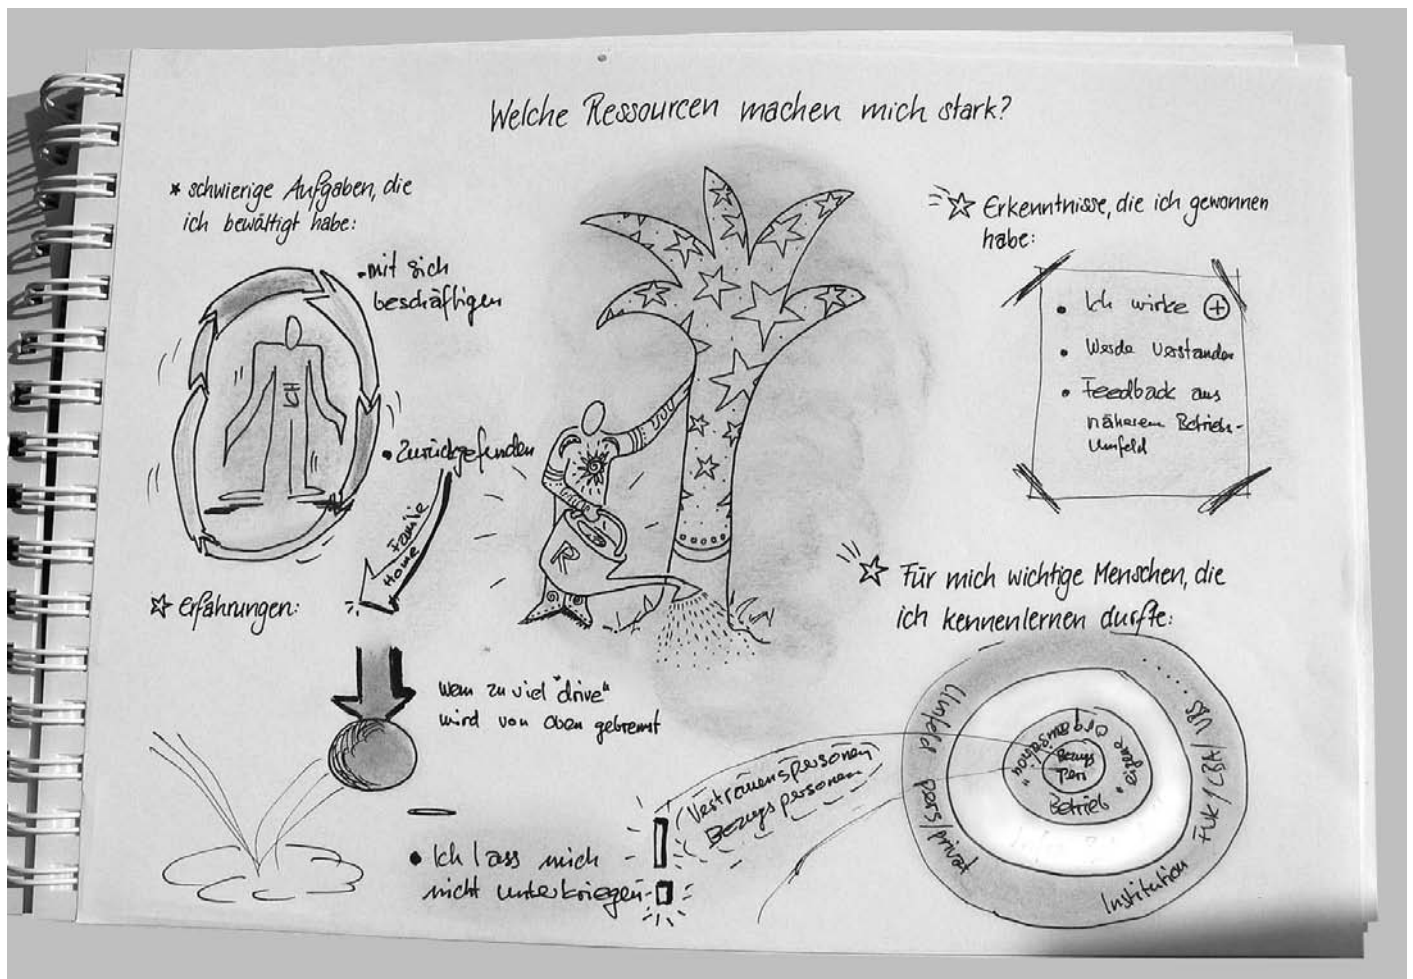 Welche Ressourcen machen mich stark?
* schwierige Aufgaben, die
ich bewältigt habe:
• mit sich
beschäftigen
CH
• Zurückgefunden
Familie
Home
☆ Erfahrungen:
Wenn zu viel "drive"
wird von oben gebremst
• Ich lass mich
nicht unterkriegen
R
☆ Erkenntnisse, die ich gewonnen
habe:
• Ich wirke ⊕
• Werde verstanden
• Feedback aus
näherem Betriebs-
Umfeld
☆ Für mich wichtige Menschen, die
ich kennenlernen durfte:
Vertrauenspersonen
Bezugspersonen
Umfeld pers/privat
Institution FUK / CBA / UBS .....
eigene Organisation
Betrieb
Bezugs